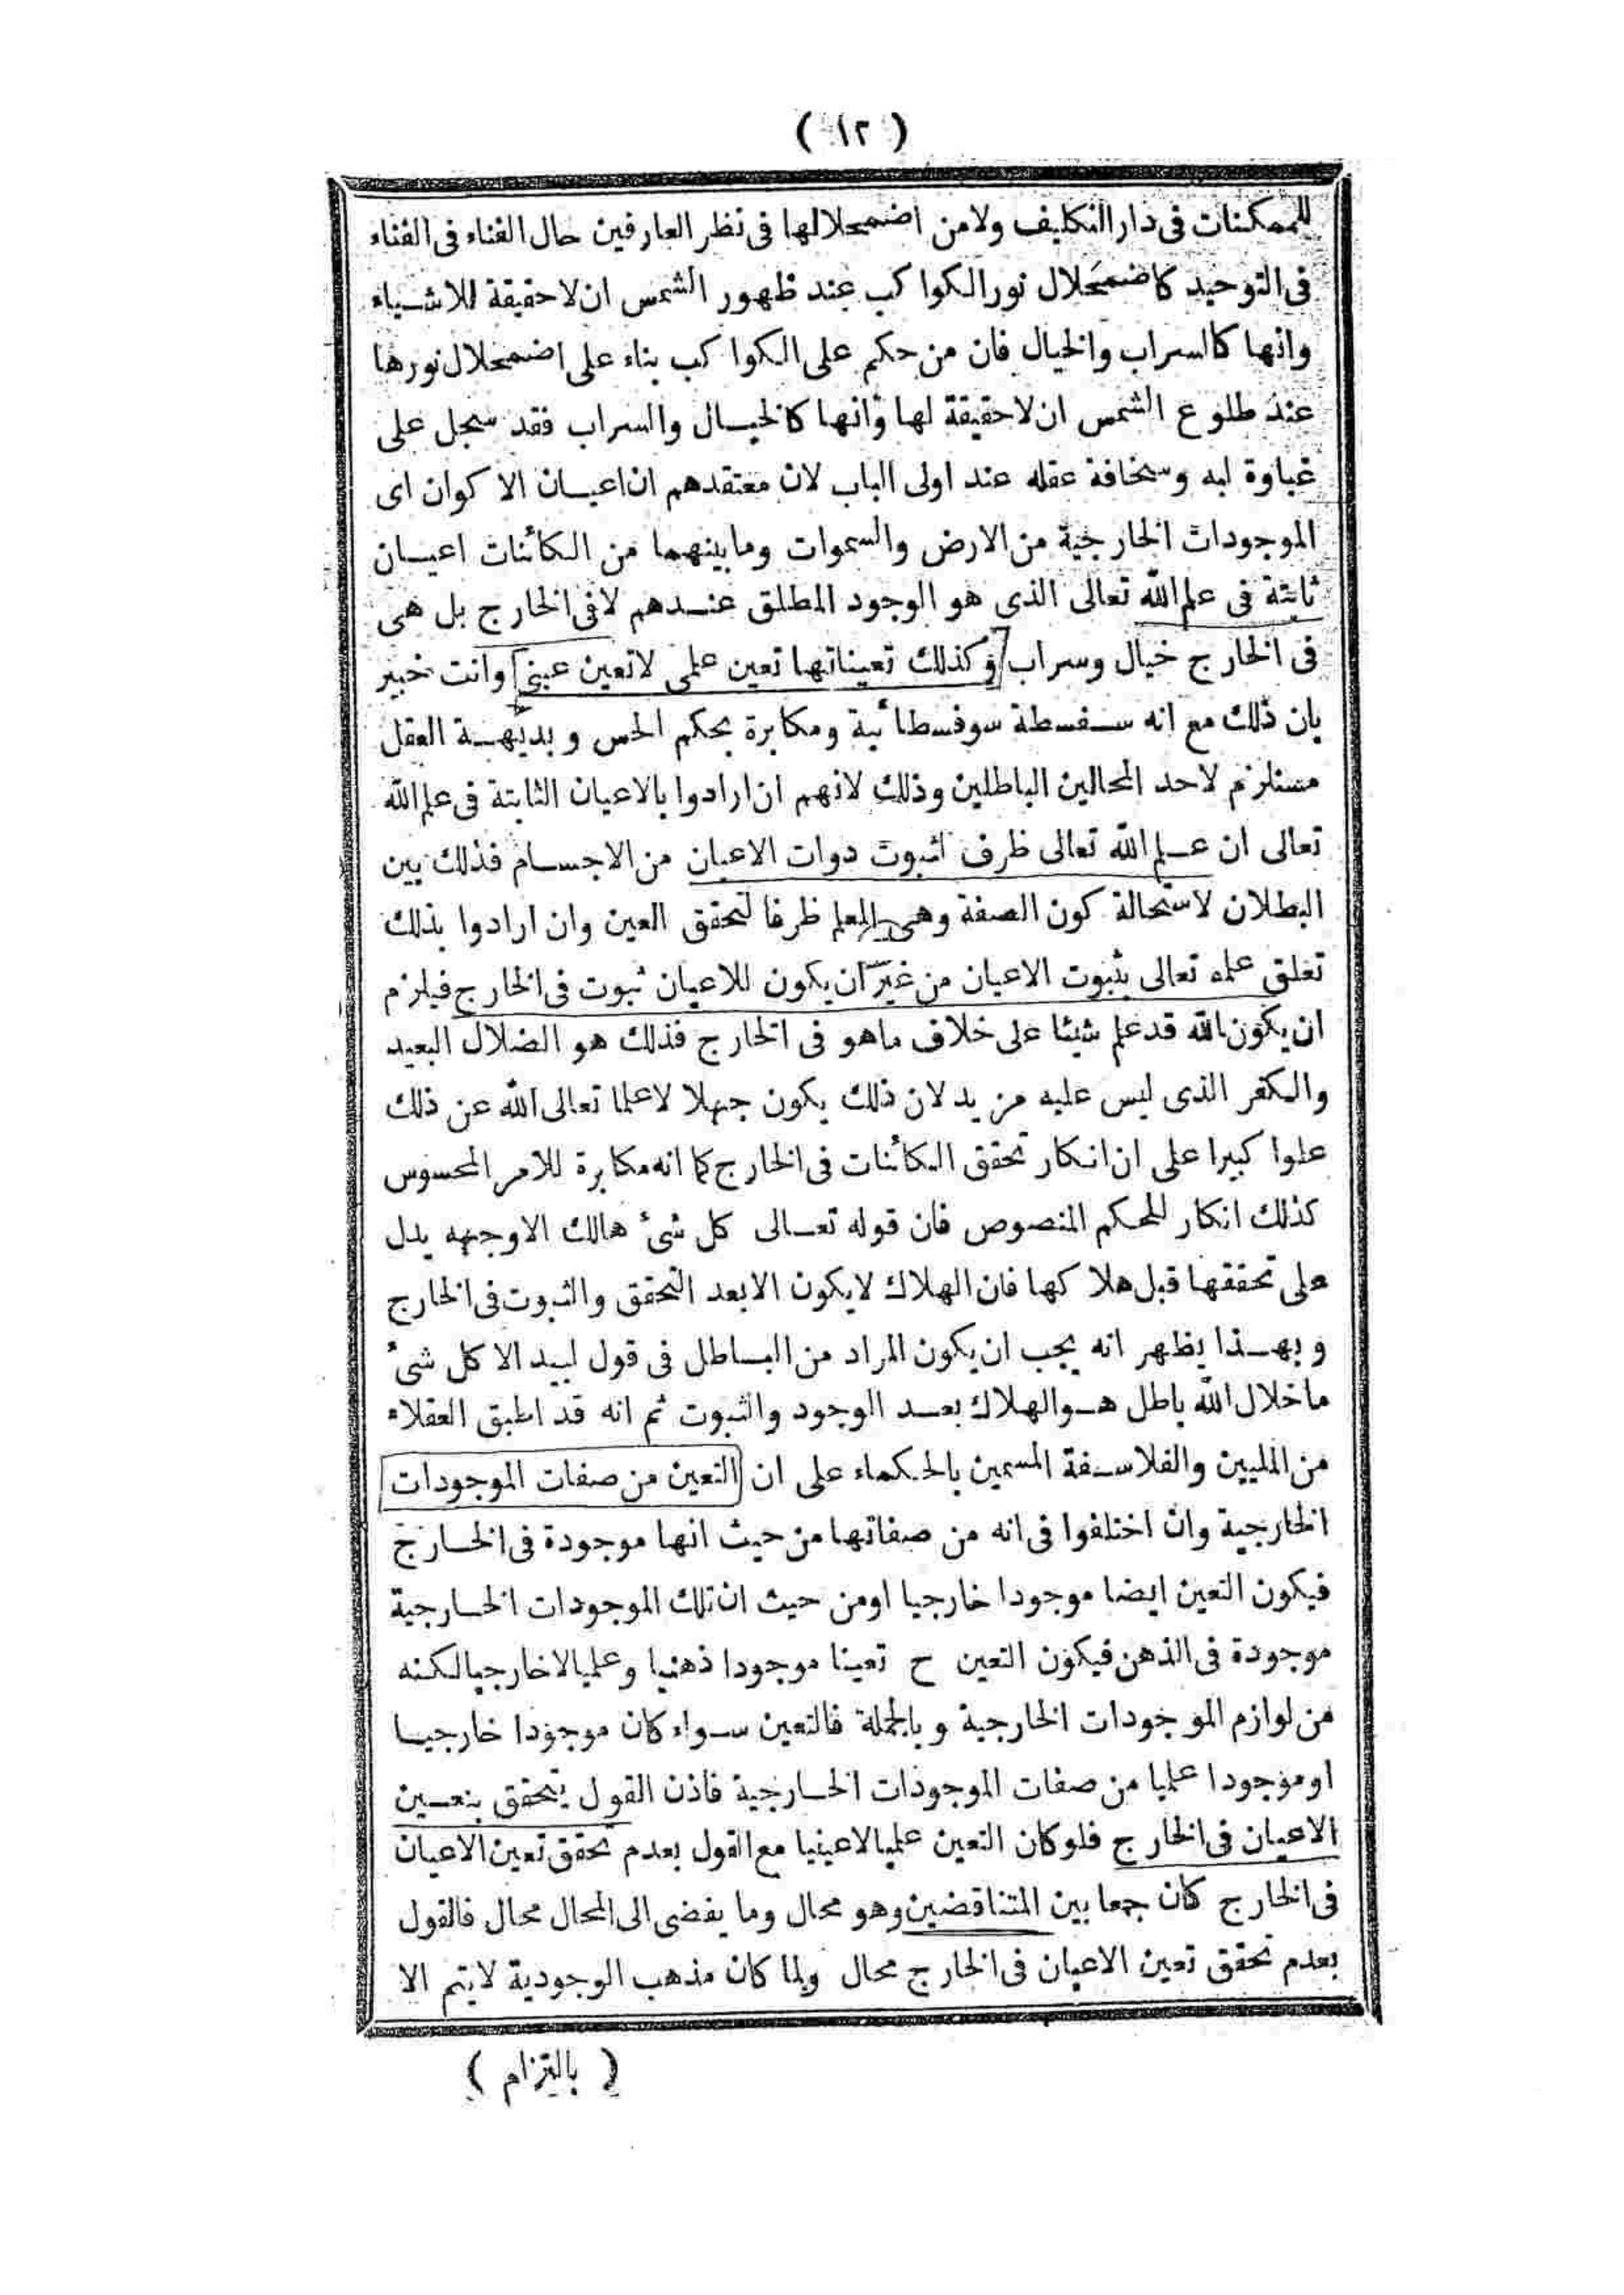 ( ١٢ )
للممكنات فى دار التكليف ولا من اضمحلالها فى نظر العارفين حال الفناء فى الفناء
فى التوحيد كاضمحلال نور الكواكب عند ظهور الشمس ان لا حقيقة للاشياء
وانها كالسراب والخيال فان من حكم على الكواكب بناء على اضمحلال نورها
عند طلوع الشمس ان لا حقيقة لها وانها كالخيال والسراب فقد سجل على
غباوة لبه وسخافة عقله عند اولى الباب لان معتقدهم ان اعيان الاكوان اى
الموجودات الخارجية من الارض والسموات وما بينهما من الكائنات اعيان
ثابتة فى علم الله تعالى الذى هو الوجود المطلق عندهم لا فى الخارج بل هى
فى الخارج خيال وسراب وكذلك تعيناتها تعين علمى لا تعين عينى وانت خبير
بان ذلك مع انه سفسطة سوفسطائية ومكابرة بحكم الحس وبديهة العقل
مستلزم لاحد المحالين الباطلين وذلك لانهم ان ارادوا بالاعيان الثابتة فى علم الله
تعالى ان علم الله تعالى ظرف لثبوت دوات الاعيان من الاجسام فذلك بين
البطلان لاستحالة كون الصفة وهى العلم ظرفا لتحقق العين وان ارادوا بذلك
تعلق علمه تعالى بثبوت الاعيان من غير ان يكون للاعيان ثبوت فى الخارج فيلزم
ان يكون الله قد علم شيئا على خلاف ما هو فى الخارج فذلك هو الضلال البعيد
والكفر الذى ليس عليه مزيد لان ذلك يكون جهلا لا علما تعالى الله عن ذلك
علوا كبيرا على ان انكار تحقق الكائنات فى الخارج كما انه مكابرة للامر المحسوس
كذلك انكار للمحكم المنصوص فان قوله تعالى كل شئ هالك الا وجهه يدل
على تحققها قبل هلاكها فان الهلاك لا يكون الا بعد التحقق والثبوت فى الخارج
وبهذا يظهر انه يجب ان يكون المراد من الباطل فى قول لبيد الا كل شئ
ما خلال الله باطل هو الهلاك بعد الوجود والثبوت ثم انه قد اطبق العقلاء
من المليين والفلاسفة المسمين بالحكماء على ان التعين من صفات الموجودات
الخارجية وان اختلفوا فى انه من صفاتها من حيث انها موجودة فى الخارج
فيكون التعين ايضا موجودا خارجيا او من حيث ان تلك الموجودات الخارجية
موجودة فى الذهن فيكون التعين ح تعينا موجودا ذهنيا وعلميا لا خارجيا لكنه
من لوازم الموجودات الخارجية وبالجملة فالتعين سواء كان موجودا خارجيا
او موجودا علميا من صفات الموجودات الخارجية فاذن القول يتحقق بتعين
الاعيان فى الخارج فلو كان التعين علميا لا عينيا مع القول بعدم تحقق تعين الاعيان
فى الخارج كان جمعا بين المتناقضين وهو محال وما يفضى الى المحال محال فالقول
بعدم تحقق تعين الاعيان فى الخارج محال ولما كان مذهب الوجودية لا يتم الا
( بالتزام )